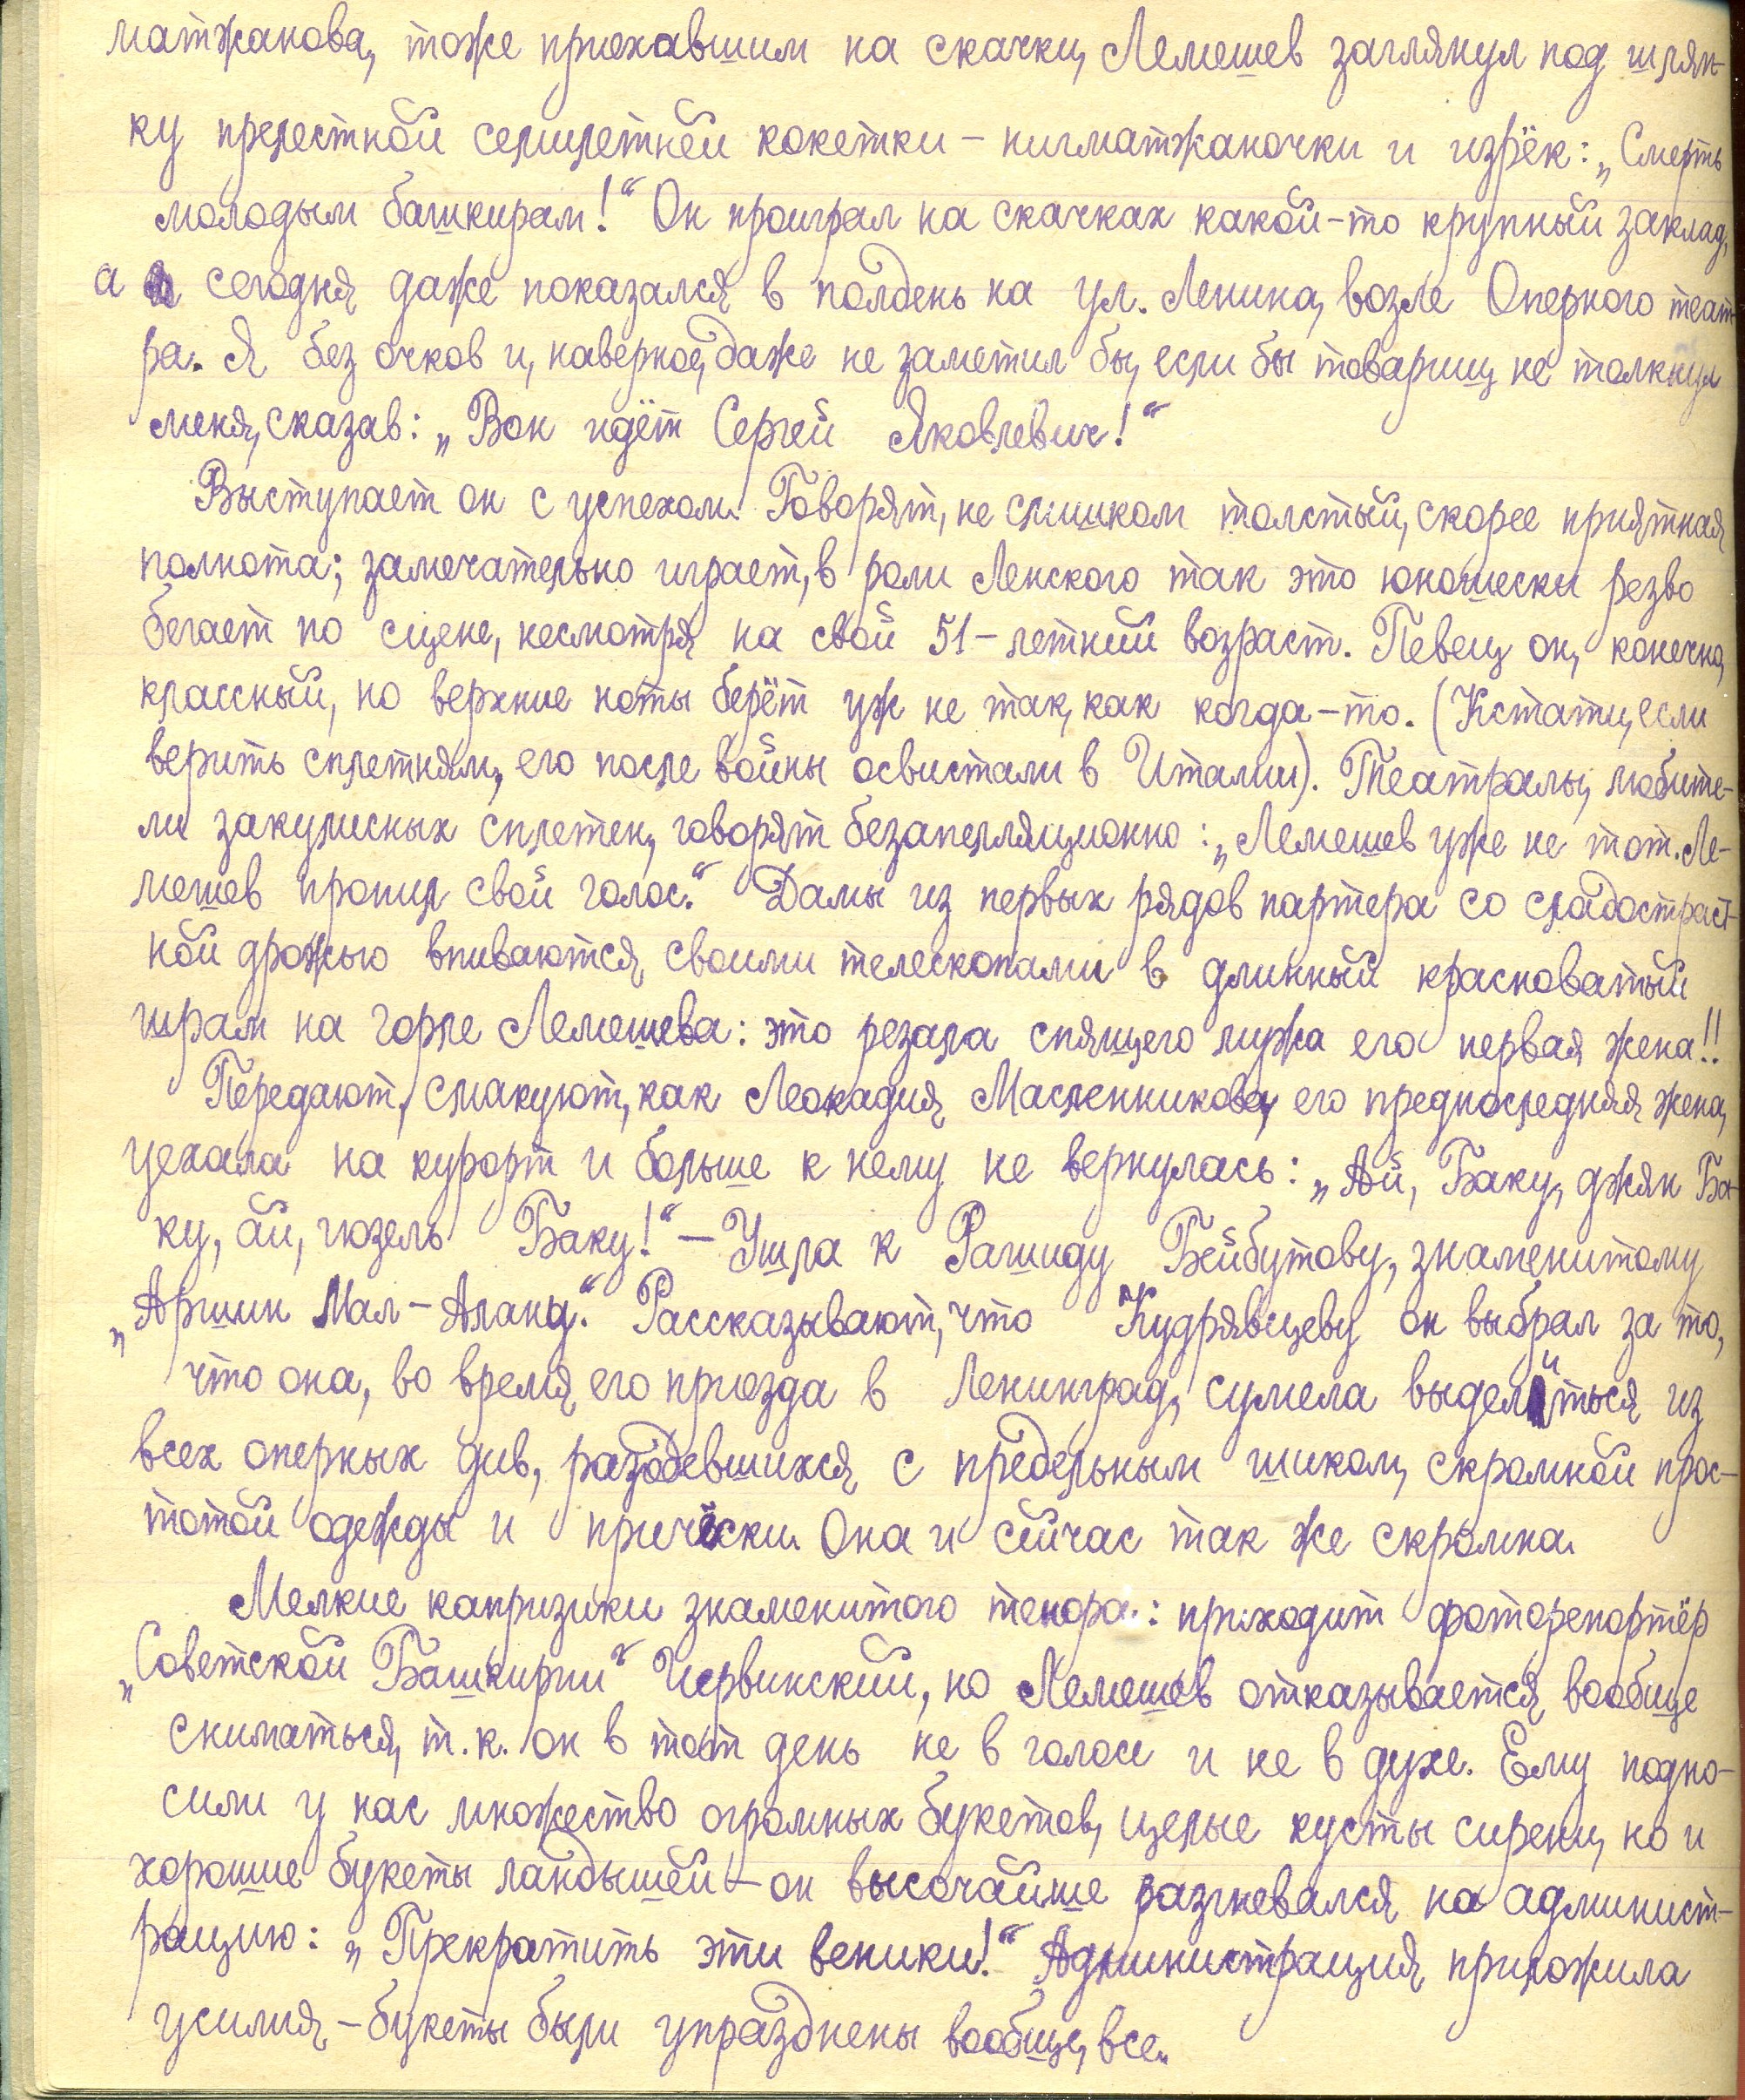 матжанова, тоже приехавшим на скачки, Лемешев заглянул под шляп-
ку прелестной семилетней кокетки – нигматжаночки и изрёк: „Смерть
молодым башкирам!“ Он проиграл на скачках какой-то крупный заклад,
а сегодня даже показался в полдень на ул. Ленина, возле Оперного теат-
ра. Я без очков и, наверное, даже не заметил бы, если бы товарищ не толкнул
меня, сказав: „Вон идёт Сергей Яковлевич!“
Выступает он с успехом. Говорят, не слишком толстый, скорее приятная
полнота; замечательно играет, в роли Ленского так это юношески резво
бегает по сцене, несмотря на свой 51-летний возраст. Певец он, конечно,
классный, но верхние ноты берёт уж не так, как когда-то. (Кстати, если
верить сплетням, его после войны освистали в Италии). Театралы, любите-
ли закулисных сплетен, говорят безапелляционно: „Лемешев уже не тот. Ле-
мешев пропил свой голос.“ Дамы из первых рядов партера со сладостраст-
ной дрожью впиваются своими телескопами в длинный красноватый
шрам на горле Лемешева: это резала спящего мужа его первая жена!!
Передают, смакуют, как Леокадия Масленникова, его предпоследняя жена,
уехала на курорт и больше к нему не вернулась: „Ай, Баку, джян Ба-
ку, ай, гюзель Баку!“ – Ушла к Рашиду Бейбутову, знаменитому
„Аршин Мал-Алану.“ Рассказывают, что Кудрявцеву он выбрал за то,
что она, во время его приезда в Ленинград, сумела выделиться из
всех оперных див, разодевшихся с предельным шиком, скромной прос-
тотой одежды и причёски. Она и сейчас так же скромна.
Мелкие капризики знаменитого тенора: приходит фоторепортёр
„Советской Башкирии“ Червинский, но Лемешев отказывается вообще
сниматься, т.к. он в тот день не в голосе и не в духе. Ему подно-
сили у нас множество огромных букетов, целые кусты сирени, но и
хорошие букеты ландышей – он высочайше разгневался на админист-
рацию: „Прекратить эти веники!“ Администрация приложила
усилия – букеты были упразднены вообще, все.